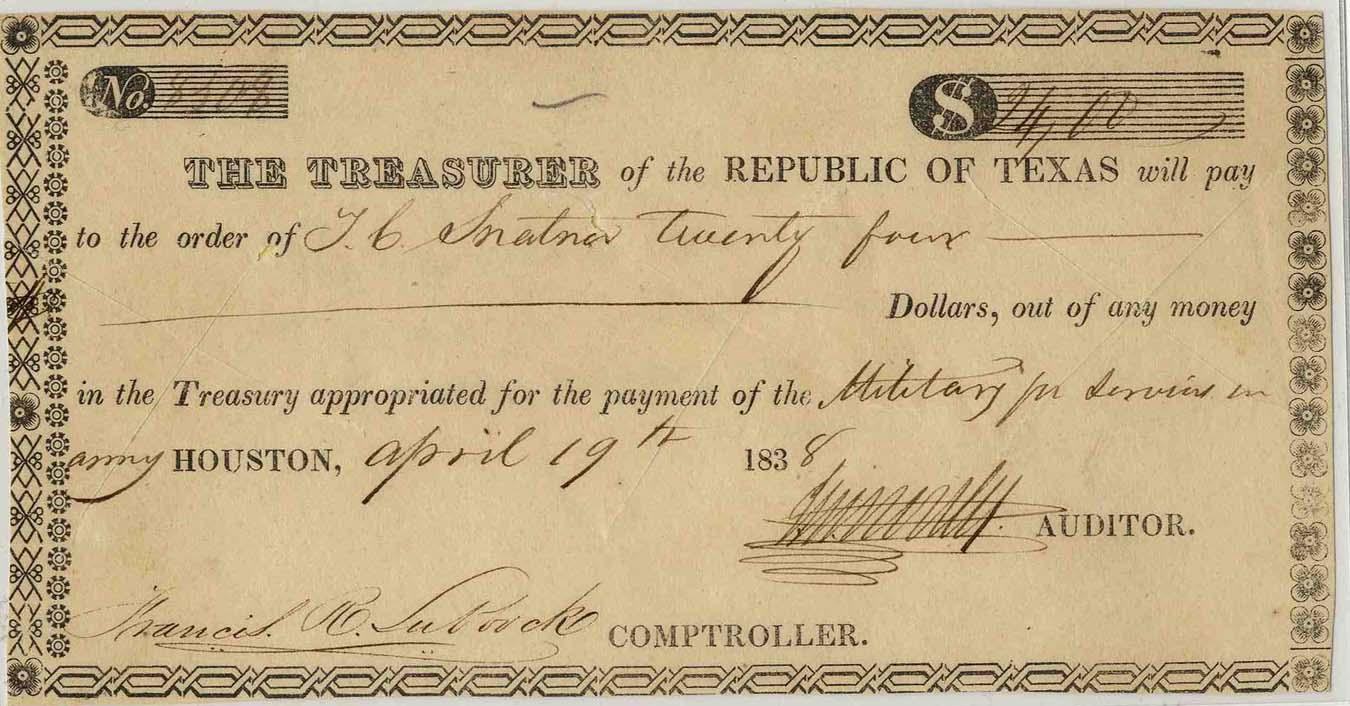 No. 8108 $ 24,00
THE TREASURER of the REPUBLIC OF TEXAS will pay
to the order of T. C. twenty four
Dollars, out of any money
in the Treasury appropriated for the payment of the Military for services in
army HOUSTON, april 19th 1838
AUDITOR.
Francis R. Lubbock COMPTROLLER.